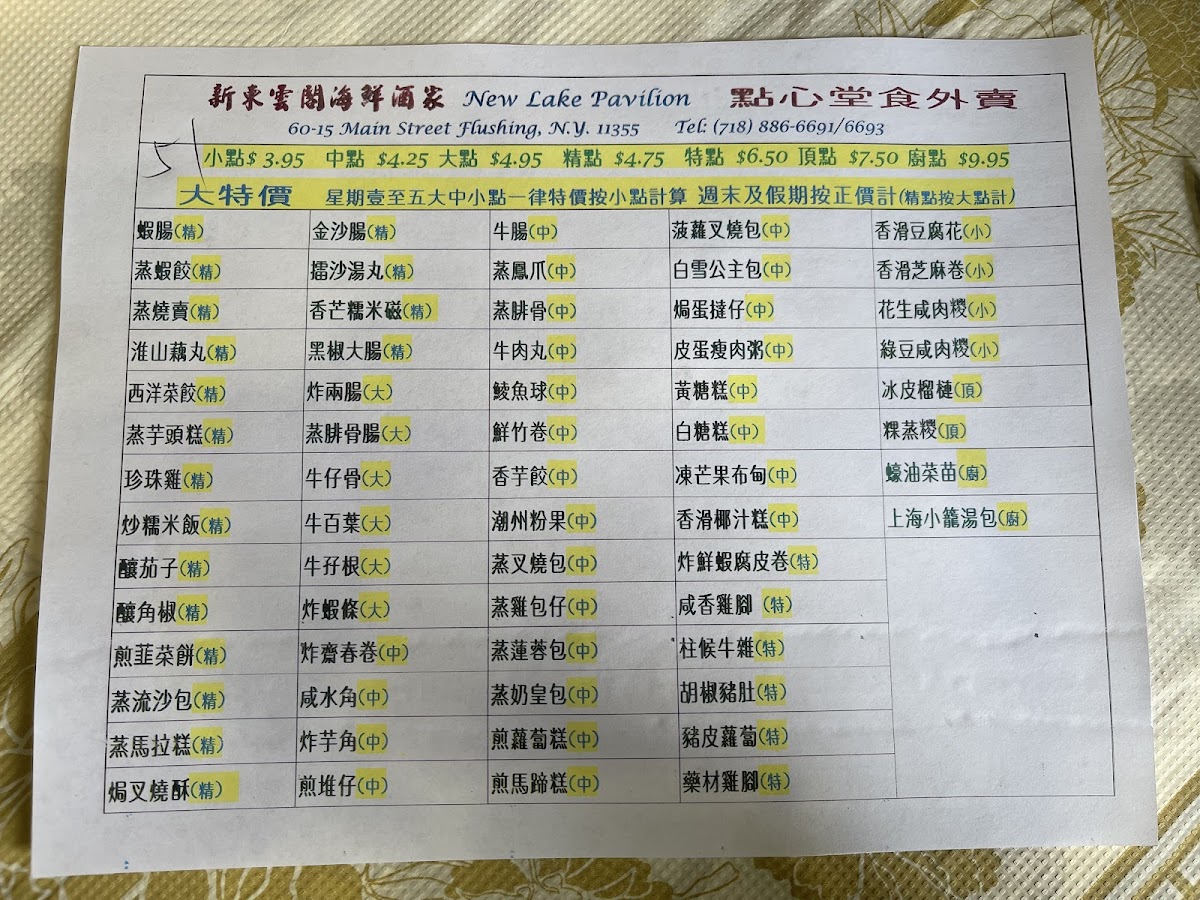 新東雲閣海鮮酒家 New Lake Pavilion 點心堂食外賣
60-15 Main Street Flushing, N.Y. 11355 Tel: (718) 886-6691/6693
51
小點$ 3.95 中點 $4.25 大點 $4.95 精點 $4.75 特點 $6.50 頂點 $7.50 廚點 $9.95
大特價 星期壹至五大中小點一律特價按小點計算 週末及假期按正價計(精點按大點計)
蝦腸(精) 金沙腸(精) 牛腸(中) 菠蘿叉燒包(中) 香滑豆腐花(小)
蒸蝦餃(精) 擂沙湯丸(精) 蒸鳳爪(中) 白雪公主包(中) 香滑芝麻卷(小)
蒸燒賣(精) 香芒糯米磁(精) 蒸腓骨(中) 焗蛋撻仔(中) 花生咸肉糭(小)
淮山藕丸(精) 黑椒大腸(精) 牛肉丸(中) 皮蛋瘦肉粥(中) 綠豆咸肉糭(小)
西洋菜餃(精) 炸兩腸(大) 鯪魚球(中) 黃糖糕(中) 冰皮榴槤(頂)
蒸芋頭糕(精) 蒸腓骨腸(大) 鮮竹卷(中) 白糖糕(中) 粿蒸糭(頂)
珍珠雞(精) 牛仔骨(大) 香芋餃(中) 凍芒果布甸(中) 蠔油菜苗(廚)
炒糯米飯(精) 牛百葉(大) 潮州粉果(中) 香滑椰汁糕(中) 上海小籠湯包(廚)
釀茄子(精) 牛孖根(大) 蒸叉燒包(中) 炸鮮蝦腐皮卷(特)
釀角椒(精) 炸蝦條(大) 蒸雞包仔(中) 咸香雞腳 (特)
煎韮菜餅(精) 炸齋春卷(中) 蒸蓮蓉包(中) 柱候牛雜(特)
蒸流沙包(精) 咸水角(中) 蒸奶皇包(中) 胡椒豬肚(特)
蒸馬拉糕(精) 炸芋角(中) 煎蘿蔔糕(中) 豬皮蘿蔔(特)
焗叉燒酥(精) 煎堆仔(中) 煎馬蹄糕(中) 藥材雞腳(特)